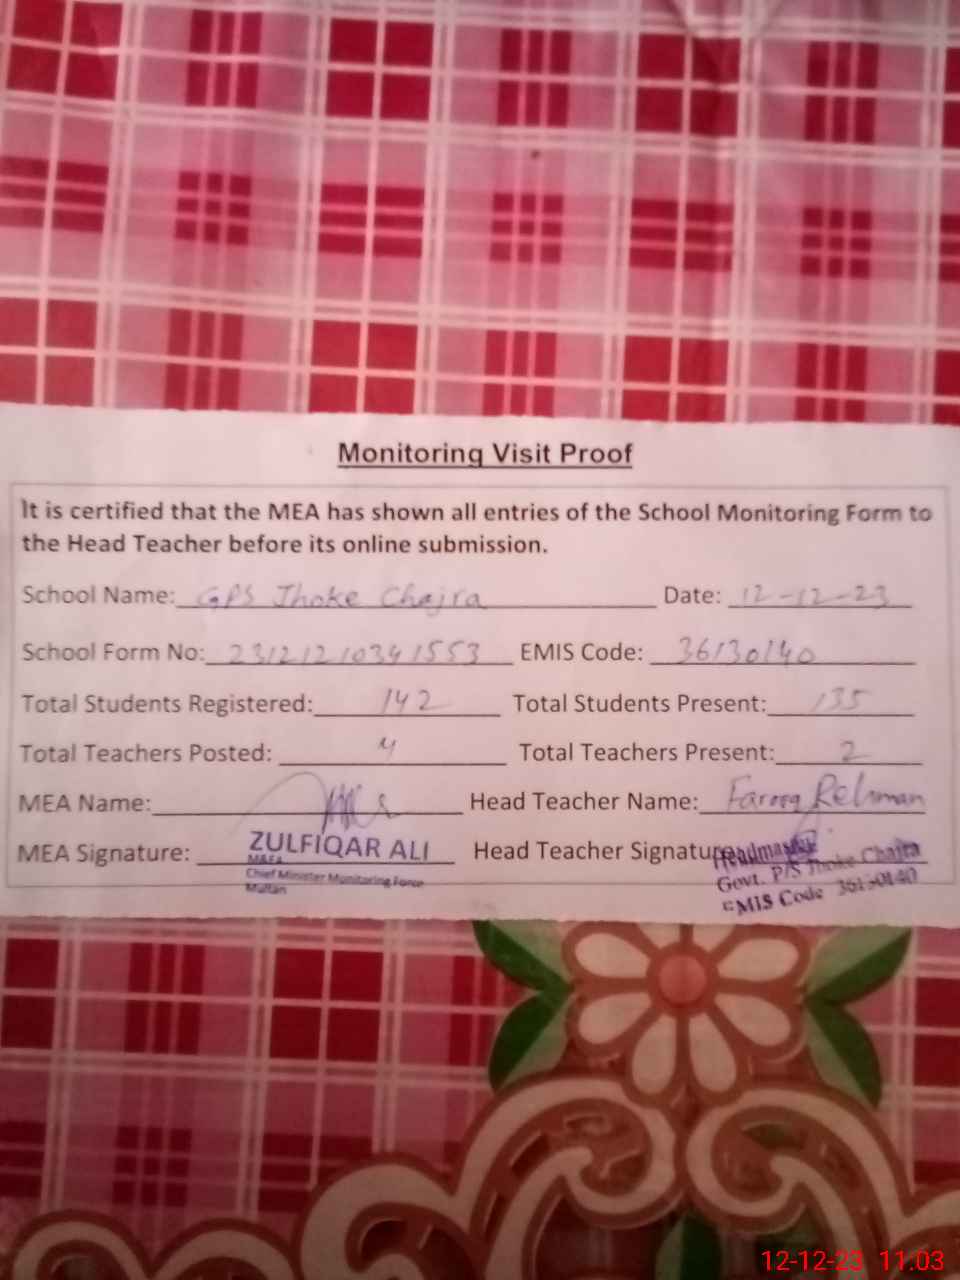 Monitoring Visit Proof
It is certified that the MEA has shown all entries of the School Monitoring Form to
the Head Teacher before its online submission.
School Name: GPS Jhoke Chajra Date: 12-12-23
School Form No: 23121210341553 EMIS Code: 36130140
Total Students Registered: 142 Total Students Present: 135
Total Teachers Posted: 4 Total Teachers Present: 2
MEA Name: Head Teacher Name: Farooq Rehman
MEA Signature: ZULFIQAR ALI Head Teacher Signature
M&EA
Chief Minister Monitoring Force
Multan
Headmaster
Govt. P/S Jhoke Chajra
EMIS Code 36130140
12-12-23 11.03